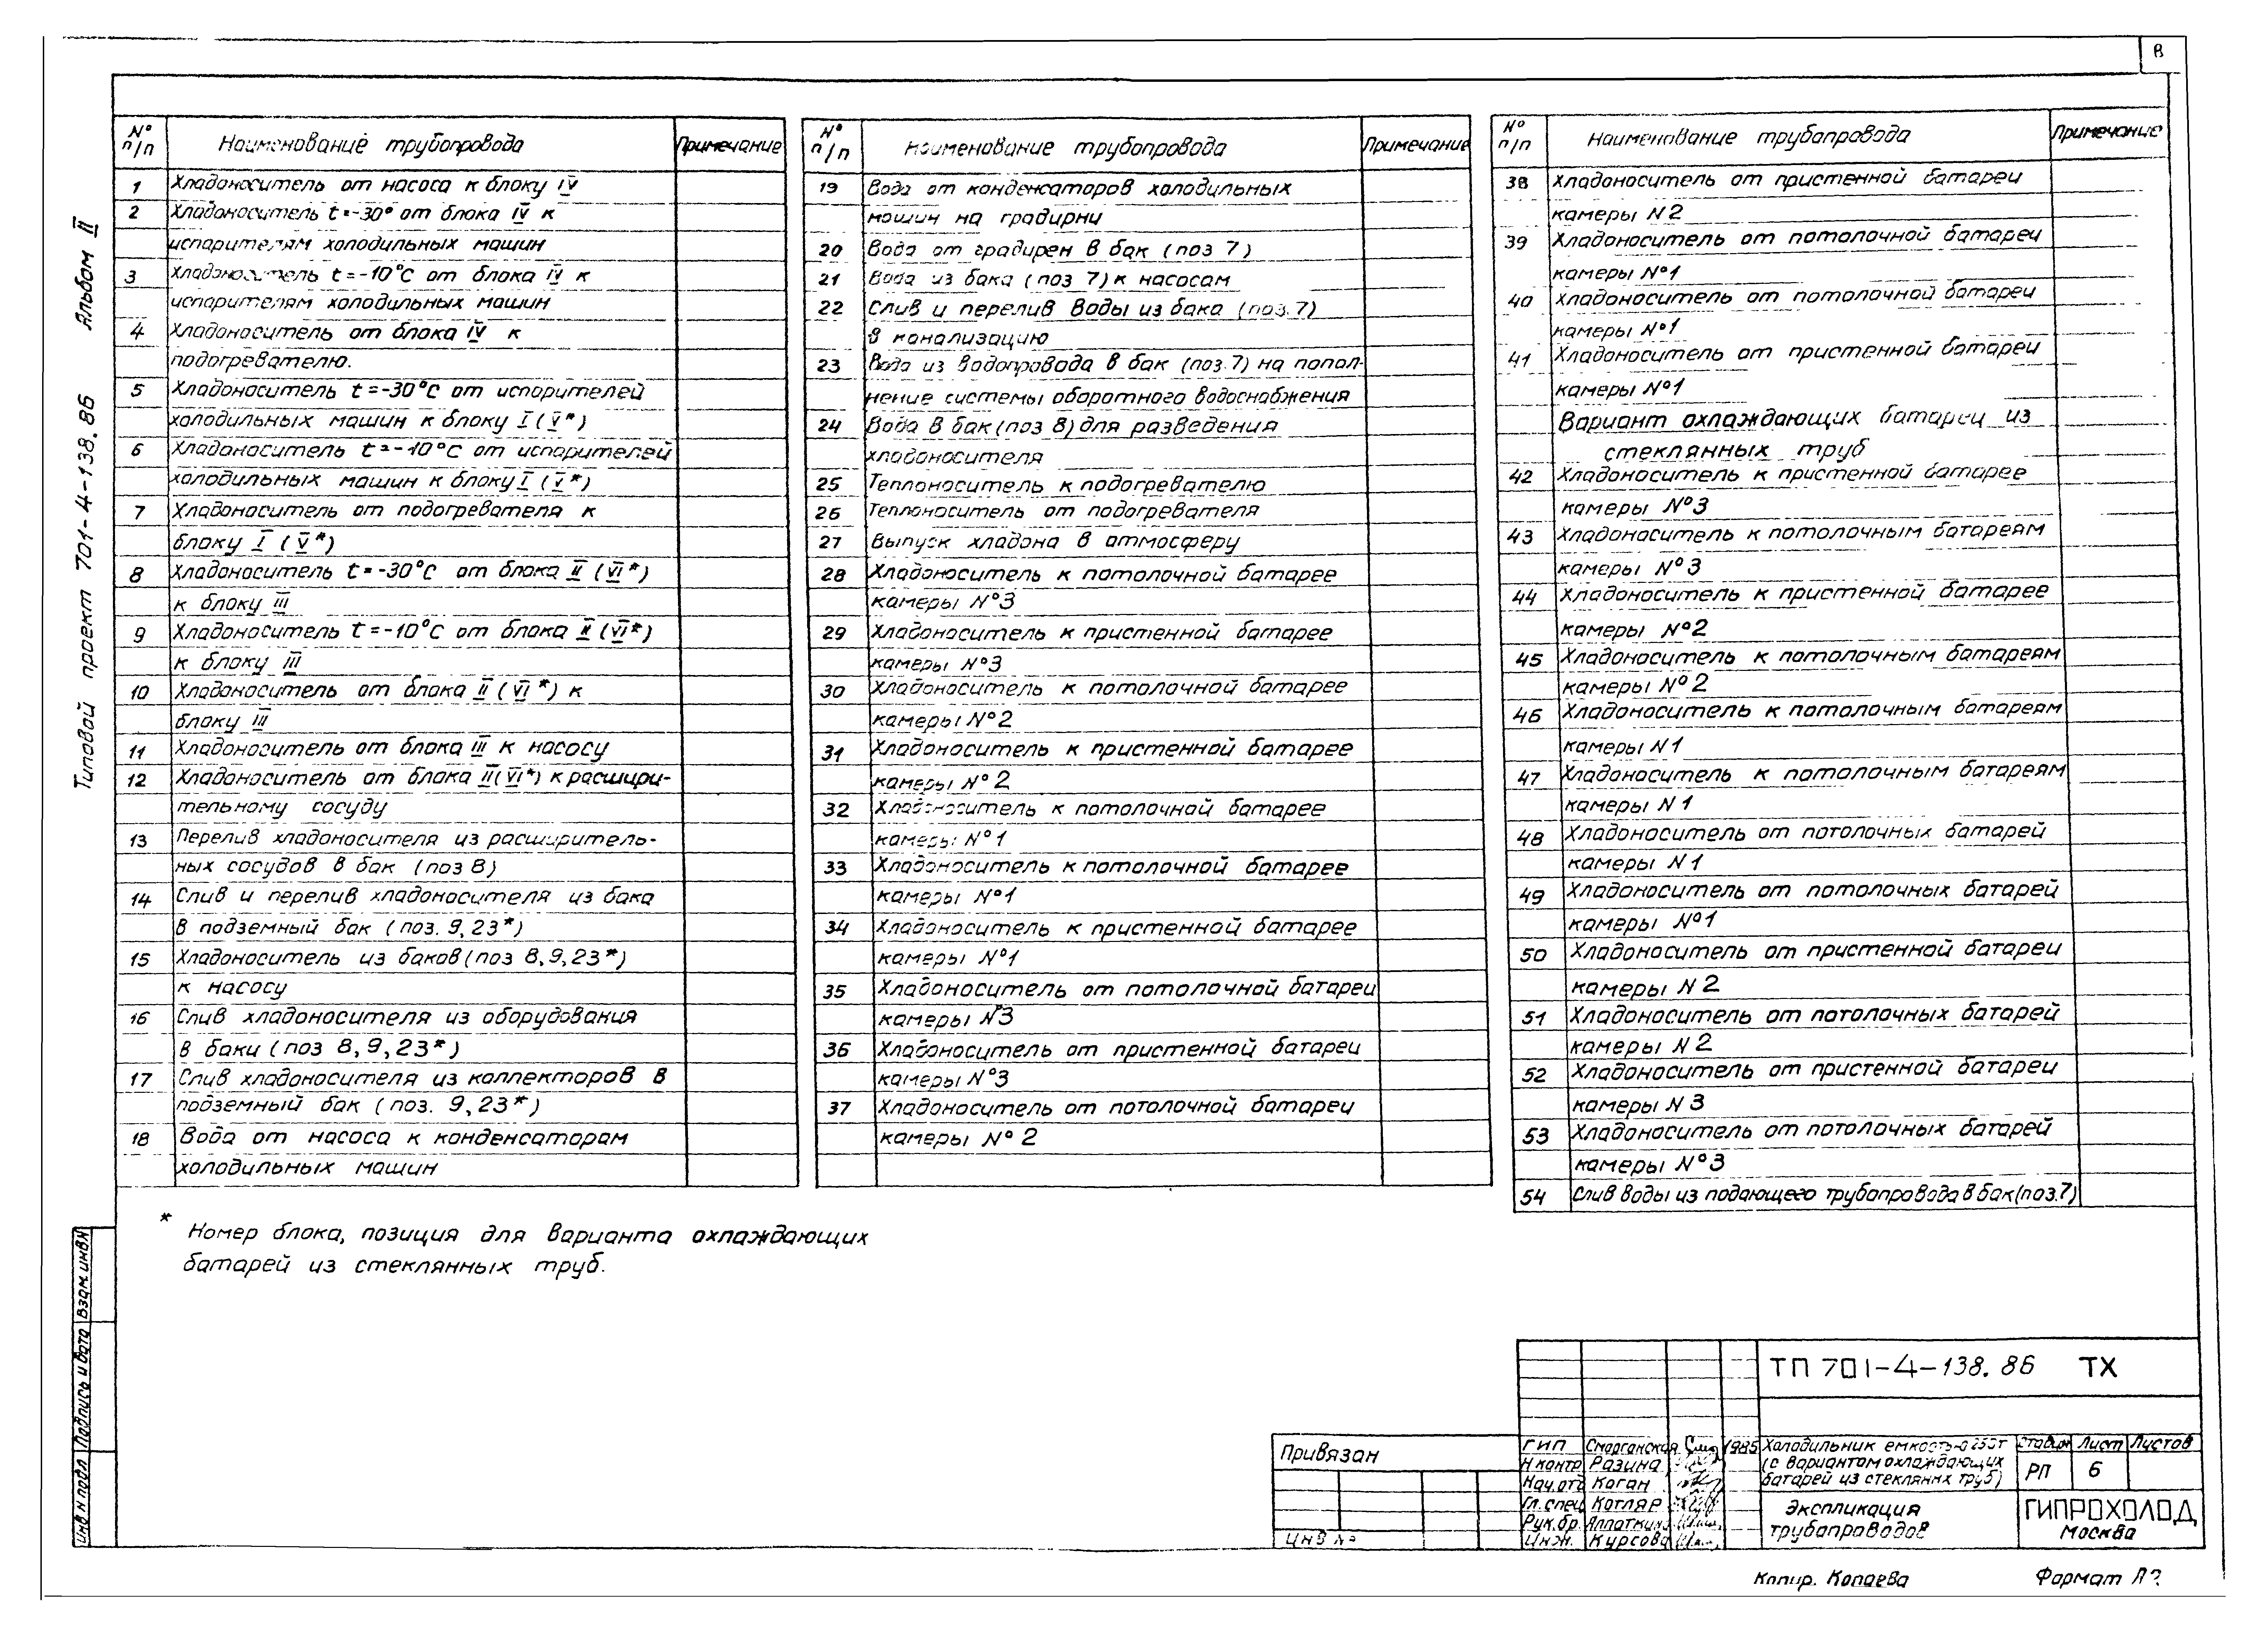 8
Альбом II
Типовой проект 701-4-138.86
№ п/п Наименование трубопровода Примечание
1 Хладоноситель от насоса к блоку IV
2 Хладоноситель t=-30° от блока IV к
испарителям холодильных машин
3 Хладоноситель t=-10°С от блока IV к
испарителям холодильных машин
4 Хладоноситель от блока IV к
подогревателю.
5 Хладоноситель t=-30°С от испарителей
холодильных машин к блоку I (V*)
6 Хладоноситель t=-10°С от испарителей
холодильных машин к блоку I (V*)
7 Хладоноситель от подогревателя к
блоку I (V*)
8 Хладоноситель t=-30°С от блока II (VI*)
к блоку III
9 Хладоноситель t=-10°С от блока II (VI*)
к блоку III
10 Хладоноситель от блока II (VI*) к
блоку III
11 Хладоноситель от блока III к насосу
12 Хладоноситель от блока II (VI*) к расшири-
тельному сосуду
13 Перелив хладоносителя из расширитель-
ных сосудов в бак (поз 8)
14 Слив и перелив хладоносителя из бака
в подземный бак (поз. 9, 23*)
15 Хладоноситель из баков (поз 8, 9, 23*)
к насосу
16 Слив хладоносителя из оборудования
в баки (поз 8, 9, 23*)
17 Слив хладоносителя из коллекторов в
подземный бак (поз. 9, 23*)
18 Вода от насоса к конденсаторам
холодильных машин
№ п/п Наименование трубопровода Примечание
19 Вода от конденсаторов холодильных
машин на градирни
20 Вода от градирен в бак (поз 7)
21 Вода из бака (поз 7) к насосам
22 Слив и перелив воды из бака (поз. 7)
в канализацию
23 Вода из водопровода в бак (поз. 7) на попол-
нение системы оборотного водоснабжения
24 Вода в бак (поз 8) для разведения
хладоносителя
25 Теплоноситель к подогревателю
26 Теплоноситель от подогревателя
27 Выпуск хладона в атмосферу
28 Хладоноситель к потолочной батарее
камеры №3
29 Хладоноситель к пристенной батарее
камеры №3
30 Хладоноситель к потолочной батарее
камеры №2
31 Хладоноситель к пристенной батарее
камеры №2
32 Хладоноситель к потолочной батарее
камеры №1
33 Хладоноситель к потолочной батарее
камеры №1
34 Хладоноситель к пристенной батарее
камеры №1
35 Хладоноситель от потолочной батареи
камеры №3
36 Хладоноситель от пристенной батареи
камеры №3
37 Хладоноситель от потолочной батареи
камеры №2
№ п/п Наименование трубопровода Примечание
38 Хладоноситель от пристенной батареи
камеры N2
39 Хладоноситель от потолочной батареи
камеры №1
40 Хладоноситель от потолочной батареи
камеры №1
41 Хладоноситель от пристенной батареи
камеры №1
Вариант охлаждающих батарец из
стеклянных труб
42 Хладоноситель к пристенной батарее
камеры №3
43 Хладоноситель к потолочным батареям
камеры №3
44 Хладоноситель к пристенной батарее
камеры №2
45 Хладоноситель к потолочным батареям
камеры №2
46 Хладоноситель к потолочным батареям
камеры N1
47 Хладоноситель к потолочным батареям
камеры N1
48 Хладоноситель от потолочных батарей
камеры N1
49 Хладоноситель от потолочных батарей
камеры №1
50 Хладоноситель от пристенной батареи
камеры N2
51 Хладоноситель от потолочных батарей
камеры N2
52 Хладоноситель от пристенной батареи
камеры N3
53 Хладоноситель от потолочных батарей
камеры №3
54 Слив воды из подающего трубопровода в бак (поз.7)
* Номер блока, позиция для варианта охлаждающих
батарей из стеклянных труб.
Инв N подл Подпись и дата Взам инв N
Привязан
Инв №
ТП 701-4-138.86 ТХ
ГИП Сморганская 1985
Н контр Разина
Нач.отд Коган
Гл. спец Котляр
Рук.бр.
Инж. Курсова
Холодильник емкостью 250т
(с вариантом охлаждающих
батарей из стеклянн труб)
Стадия Лист Листов
РП 6
Экспликация
трубопроводов
ГИПРОХОЛОД
Москва
Копир. Копаева Формат